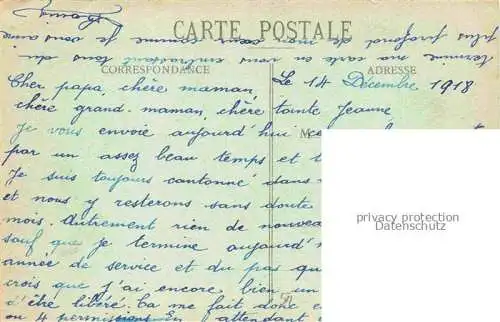 CARTE POSTALE
CORRESPONDANCE
ADRESSE
Le 14 Décembre 1918
Cher papa, chère maman,
chère grand-maman, chère tante Jeanne
Je vous envoie aujourd'hui
par un assez beau temps et
Je suis toujours cantonné dans
et nous y resterons sans doute
mois. Autrement rien de nouveau
sauf que je termine aujourd'
année de service et du pas que
crois que j'ai encore bien un
d'être libéré. Ça me fait donc
ou 4 permissions. En attendant
termine ma carte en vous embrassant tous
plus
privacy protection
Datenschutz